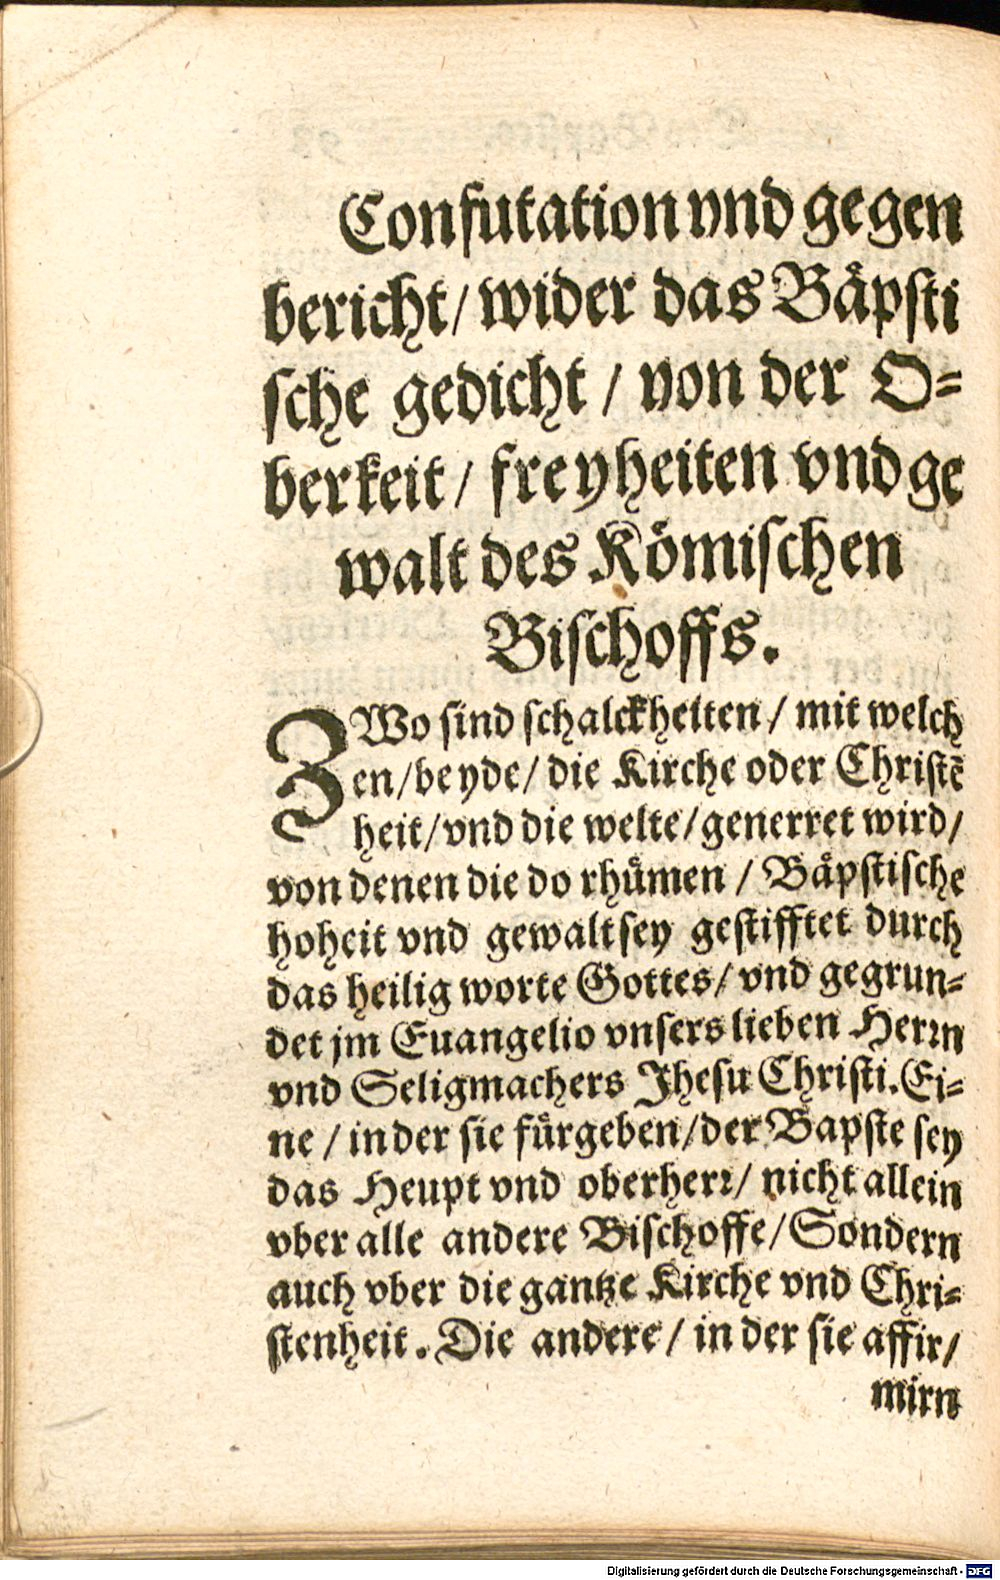 Confutation vnd gegen
bericht/ wider das Bäpsti
sche gedicht / von der O=
berkeit/ freyheiten vnd ge
walt des Römischen
Bischoffs.
ZWo sind schalckheiten/ mit welch
en/beyde/ die Kirche oder Christē
heit/vnd die welte/generret wird/
von denen die do rhümen / Bäpstische
hoheit vnd gewalt sey gestifftet durch
das heilig worte Gottes/ vnd gegrun=
det jm Euangelio vnsers lieben Herrn
vnd Seligmachers Jhesu Christi. Ei=
ne / in der sie fürgeben/der Bapste sey
das Heupt vnd oberherr/ nicht allein
vber alle andere Bischoffe/Sondern
auch vber die gantze Kirche vnd Chri=
stenheit. Die andere/ in der sie affir/
mirn
Digitalisierung gefördert durch die Deutsche Forschungsgemeinschaft - DFG